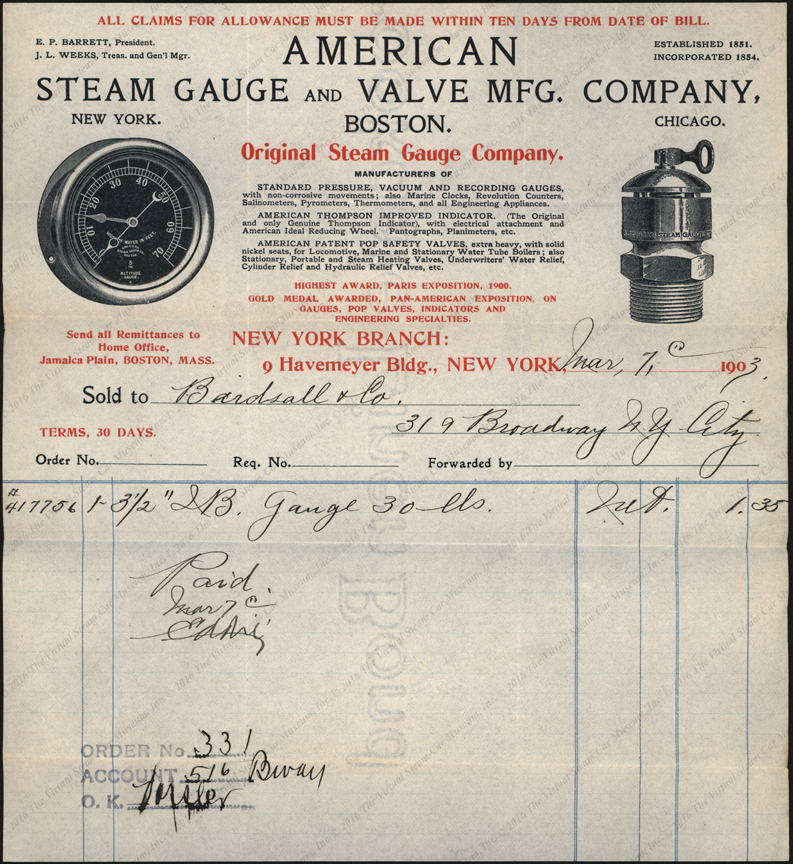 ALL CLAIMS FOR ALLOWANCE MUST BE MADE WITHIN TEN DAYS FROM DATE OF BILL.
E. P. BARRETT, President.
J. L. WEEKS, Treas. and Gen'l Mgr.
ESTABLISHED 1851.
INCORPORATED 1854.
AMERICAN
STEAM GAUGE AND VALVE MFG. COMPANY,
NEW YORK.
BOSTON.
CHICAGO.
Original Steam Gauge Company.
MANUFACTURERS OF
STANDARD PRESSURE, VACUUM AND RECORDING GAUGES,
with non-corrosive movements; also Marine Clocks, Revolution Counters,
Salinometers, Pyrometers, Thermometers, and all Engineering Appliances.
AMERICAN THOMPSON IMPROVED INDICATOR. (The Original
and only Genuine Thompson Indicator), with electrical attachment and
American Ideal Reducing Wheel. Pantographs, Planimeters, etc.
AMERICAN PATENT POP SAFETY VALVES, extra heavy, with solid
nickel seats, for Locomotive, Marine and Stationary Water Tube Boilers; also
Stationary, Portable and Steam Heating Valves, Underwriters' Water Relief,
Cylinder Relief and Hydraulic Relief Valves, etc.
10 20 30 40 50 60 70
ALTITUDE
GAUGE
STEAM GAUGE
HIGHEST AWARD, PARIS EXPOSITION, 1900.
GOLD MEDAL AWARDED, PAN-AMERICAN EXPOSITION, ON
GAUGES, POP VALVES, INDICATORS AND
ENGINEERING SPECIALTIES.
Send all Remittances to
Home Office,
Jamaica Plain, BOSTON, MASS.
NEW YORK BRANCH:
9 Havemeyer Bldg., NEW YORK, Mar, 7, 1903.
Sold to Bardsall & Co.
319 Broadway N.Y. City
TERMS, 30 DAYS.
Order No. Req. No. Forwarded by
# 417756 1- 3½" I.B. Gauge 30 lbs. Net. 1.35
Paid.
Mar 7
ORDER No. 331
ACCOUNT 516 Bway
O. K.